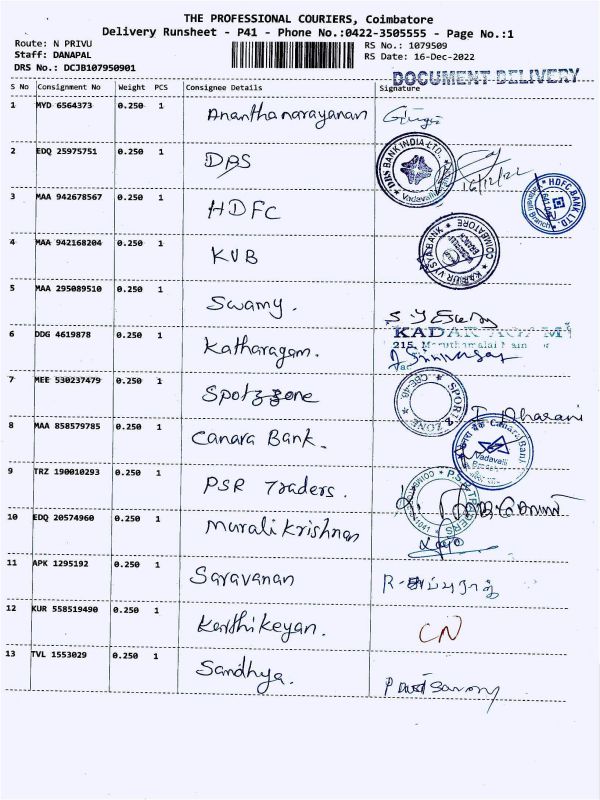 THE PROFESSIONAL COURIERS, Coimbatore
Delivery Runsheet - P41 - Phone No.:0422-3505555 - Page No.:1
Route: N PRIVU
Staff: DANAPAL
DRS No.: DCJB107950901
RS No.: 1079509
RS Date: 16-Dec-2022
DOCUMENT DELIVERY
S No Consignment No Weight PCS Consignee Details Signature
1 MYD 6564373 0.250 1 Ananthanarayanan
2 EDQ 25975751 0.250 1 DBS
DBS BANK INDIA LTD. Vadavalli
16/12/22
3 MAA 942678567 0.250 1 HDFC
HDFC BANK LTD. Branch
4 MAA 942168204 0.250 1 KVB
KARUR VYSYA BANK COIMBATORE
5 MAA 295089510 0.250 1 Swamy.
6 DDG 4619878 0.250 1 Katharagam.
215, Maruthamalai Main
7 MEE 530237479 0.250 1 Spotzzone
SPORT Z ZONE CBE-46
8 MAA 858579785 0.250 1 Canara Bank.
T. Dharani
Canara Bank Vadavalli
9 TRZ 190010293 0.250 1 PSR Traders.
P.S.R TRADERS
10 EDQ 20574960 0.250 1 Murali Krishnan
11 APK 1295192 0.250 1 Saravanan
12 KUR 558519490 0.250 1 Karthikeyan. CN
13 TVL 1553029 0.250 1 Sandhya.